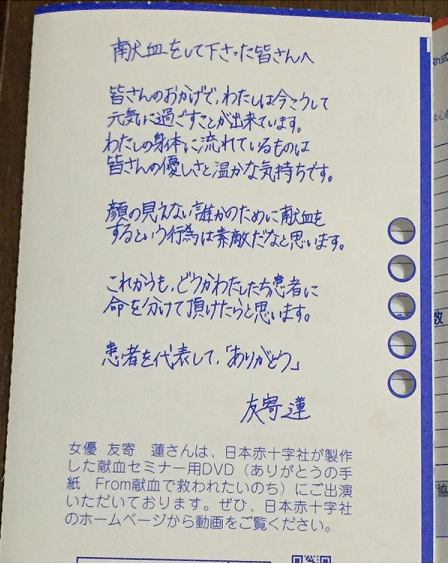 献血をして下さった皆さんへ
皆さんのおかげで、わたしは今こうして
元気に過ごすことが出来ています。
わたしの身体に流れているものは
皆さんの優しさと温かな気持ちです。
顔の見えない誰かのために献血を
するという行為は素敵だなと思います。
これからも、どうかわたしたち患者に
命を分けて頂けたらと思います。
患者を代表して、「ありがとう」
友寄 蓮
女優 友寄 蓮さんは、日本赤十字社が製作
した献血セミナー用DVD（ありがとうの手
紙 From献血で救われたいのち）にご出演
いただいております。ぜひ、日本赤十字社
のホームページから動画をご覧ください。